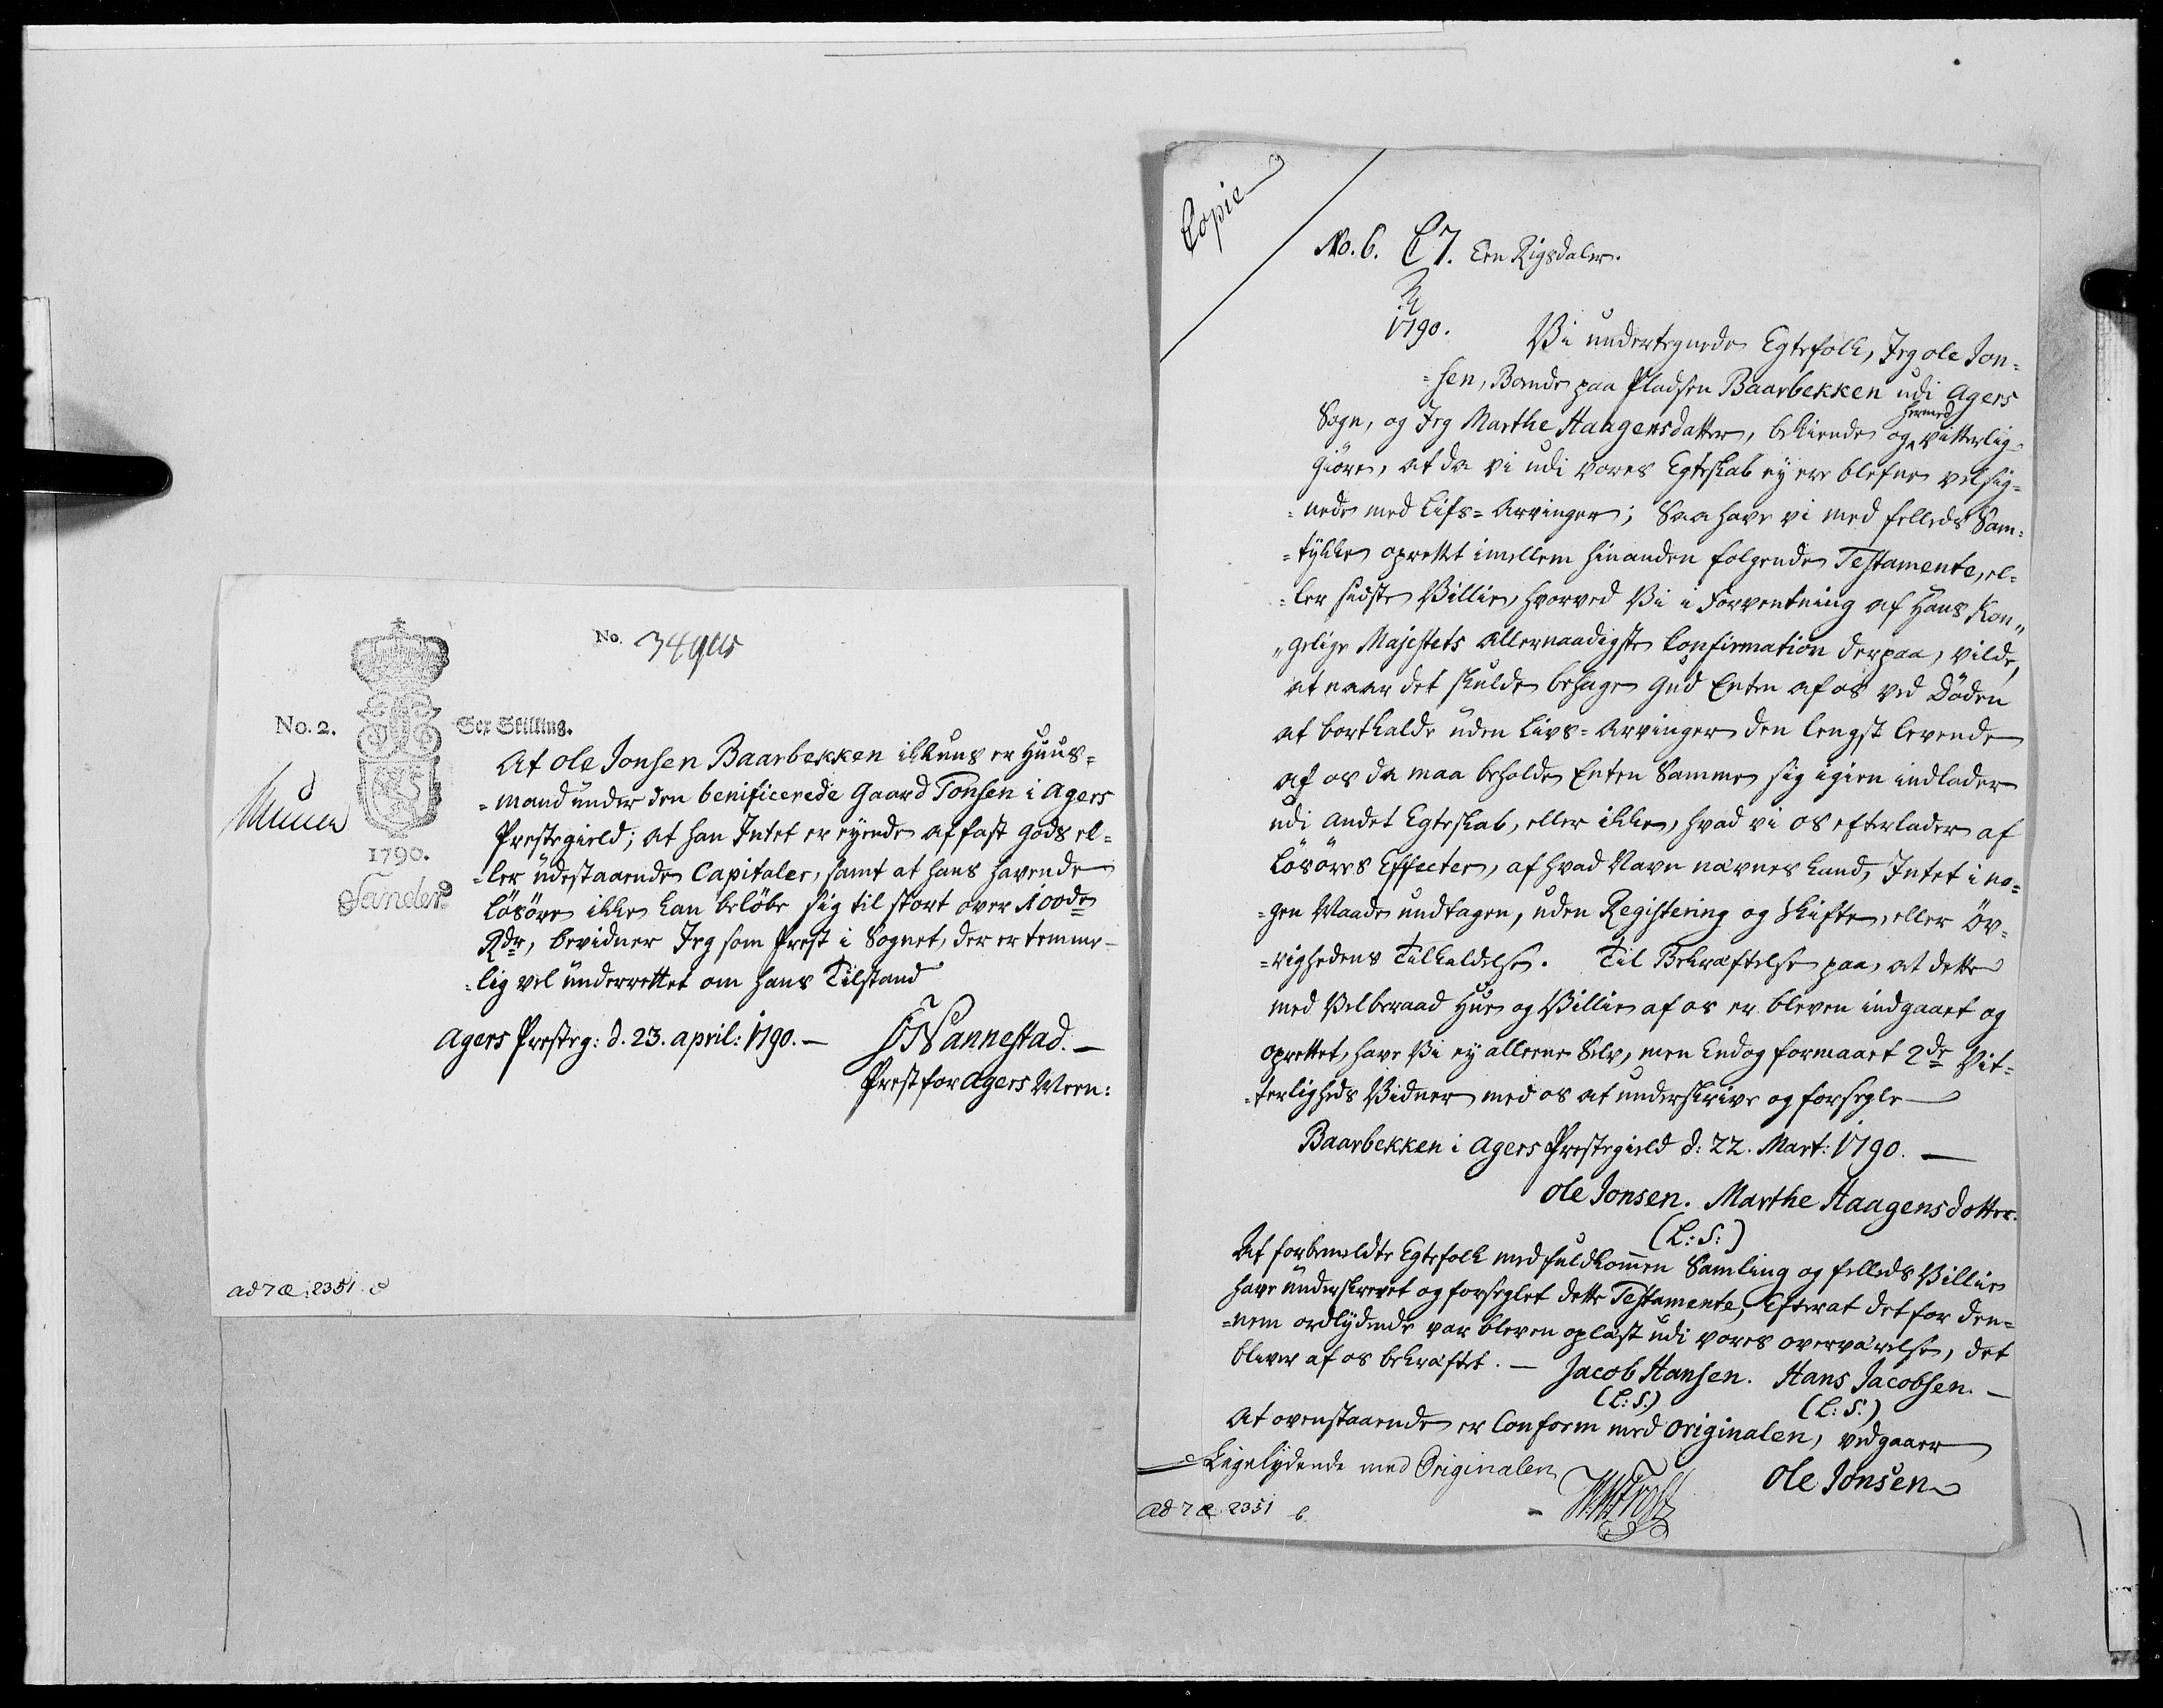 No. 2.
No. 34912
Sex Skilling.
1790.
Sander
At Ole Jonsen Baarbekken ikkuns er Huus=
=mand under den benificerede Gaard Tonsen i Agers
Prestegield; at han Intet er eyende af fast Gods el=
=ler udestaaende Capitaler, samt at hans havende
Løsøre ikke kan beløbe sig til stort over 100de
Rdr, bevidner Jeg som Prest i Sognet, der er temme=
=lig vel underrettet om hans Tilstand
Agers Presteg: d. 23. april: 1790. —
Nannestad. —
Prest for Agers Meen:
ad 7 Æ 2351 c
Copie
No. 6. C7. Een Rigsdaler.
1790.
Vi undertegnede Egtefolk, Jeg Ole Jon=
=sen, Boende paa Pladsen Baarbekken udi Agers
Sogn, og Jeg Marthe Haagensdatter, bekiende og hermed vitterlig=
giøre, at da vi udi vores Egteskab ey ere blefne velsig=
=nede med Lifs=Arvinger; Saa have vi med felleds Sam=
=tykke oprettet imellem hinanden følgende Testamente, el=
=ler sidste Villie, hvorved Vi i Forventning af Hans Kon„
„gelige Majestets allernaadigste Confirmation derpaa, vilde,
at naar det skulde behage Gud Enten af os ved Døden
at bortkalde uden Livs=Arvinger den lengst levende
af os da maa beholde Enten Samme sig igien indlader
udi andet Egteskab, eller ikke, hvad vi os efterlader af
Løsøres Effecter, af hvad Navn nævnes kand, Intet i no=
=gen Maade undtagen, uden Registering og Skifte, eller Øv=
=righedens Tilkaldelse. Til Bekræftelse paa, at dette
med Velberaad Hue og Villie af os er bleven indgaaet og
oprettet, have Vi ey alleene Selv, men Endog formaaet 2de Vit=
=terligheds Vidner med os at underskrive og forsegle
Baarbekken i Agers Prestegield d: 22. Mart: 1790. —
Ole Jonsen. Marthe Haagensdotter.
(L: S:)
At forbemeldte Egtefolk med fuldkommen Samling og felleds Villie
have underskrevet og forseglet dette Testamente, Efterat det for den=
=nem ordlydende var bleven oplæst udi vores overværelse, det
bliver af os bekræftet. — Jacob Hansen. Hans Jacobsen. —
(L: S:) (L: S:)
At ovenstaaende er Conform med Originalen, vedgaaer
Ole Jonsen
Ligelydende med Originalen
ad 7 Æ 2351 b